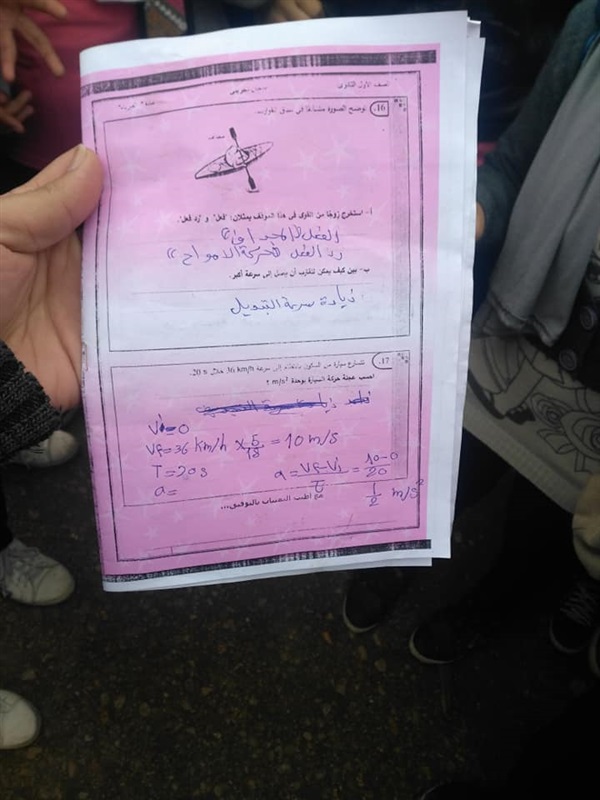 الصف الأول الثانوى
16. توضح الصورة
مجداف
أ- استخرج زوجًا من القوى فى هذا الموقف يمثلان: "فعل" و "رد فعل".
الفعل (المجداف)
رد الفعل (حركة الامواج)
ب- بين كيف يمكن للقارب أن يصل إلى سرعة أكبر.
زيادة سرعة التبديل
17. تتسارع سيارة من السكون بانتظام إلى سرعة 36 km/h خلال 20 s.
احسب عجلة حركة السيارة بوحدة m/s² ؟
Vi=0
Vf=36 km/h × 5/18 = 10 m/s
T=20s a= Vf-Vi/t = 10-0/20
a= 1/2 m/s²
مع أطيب التمنيات بالتوفيق...